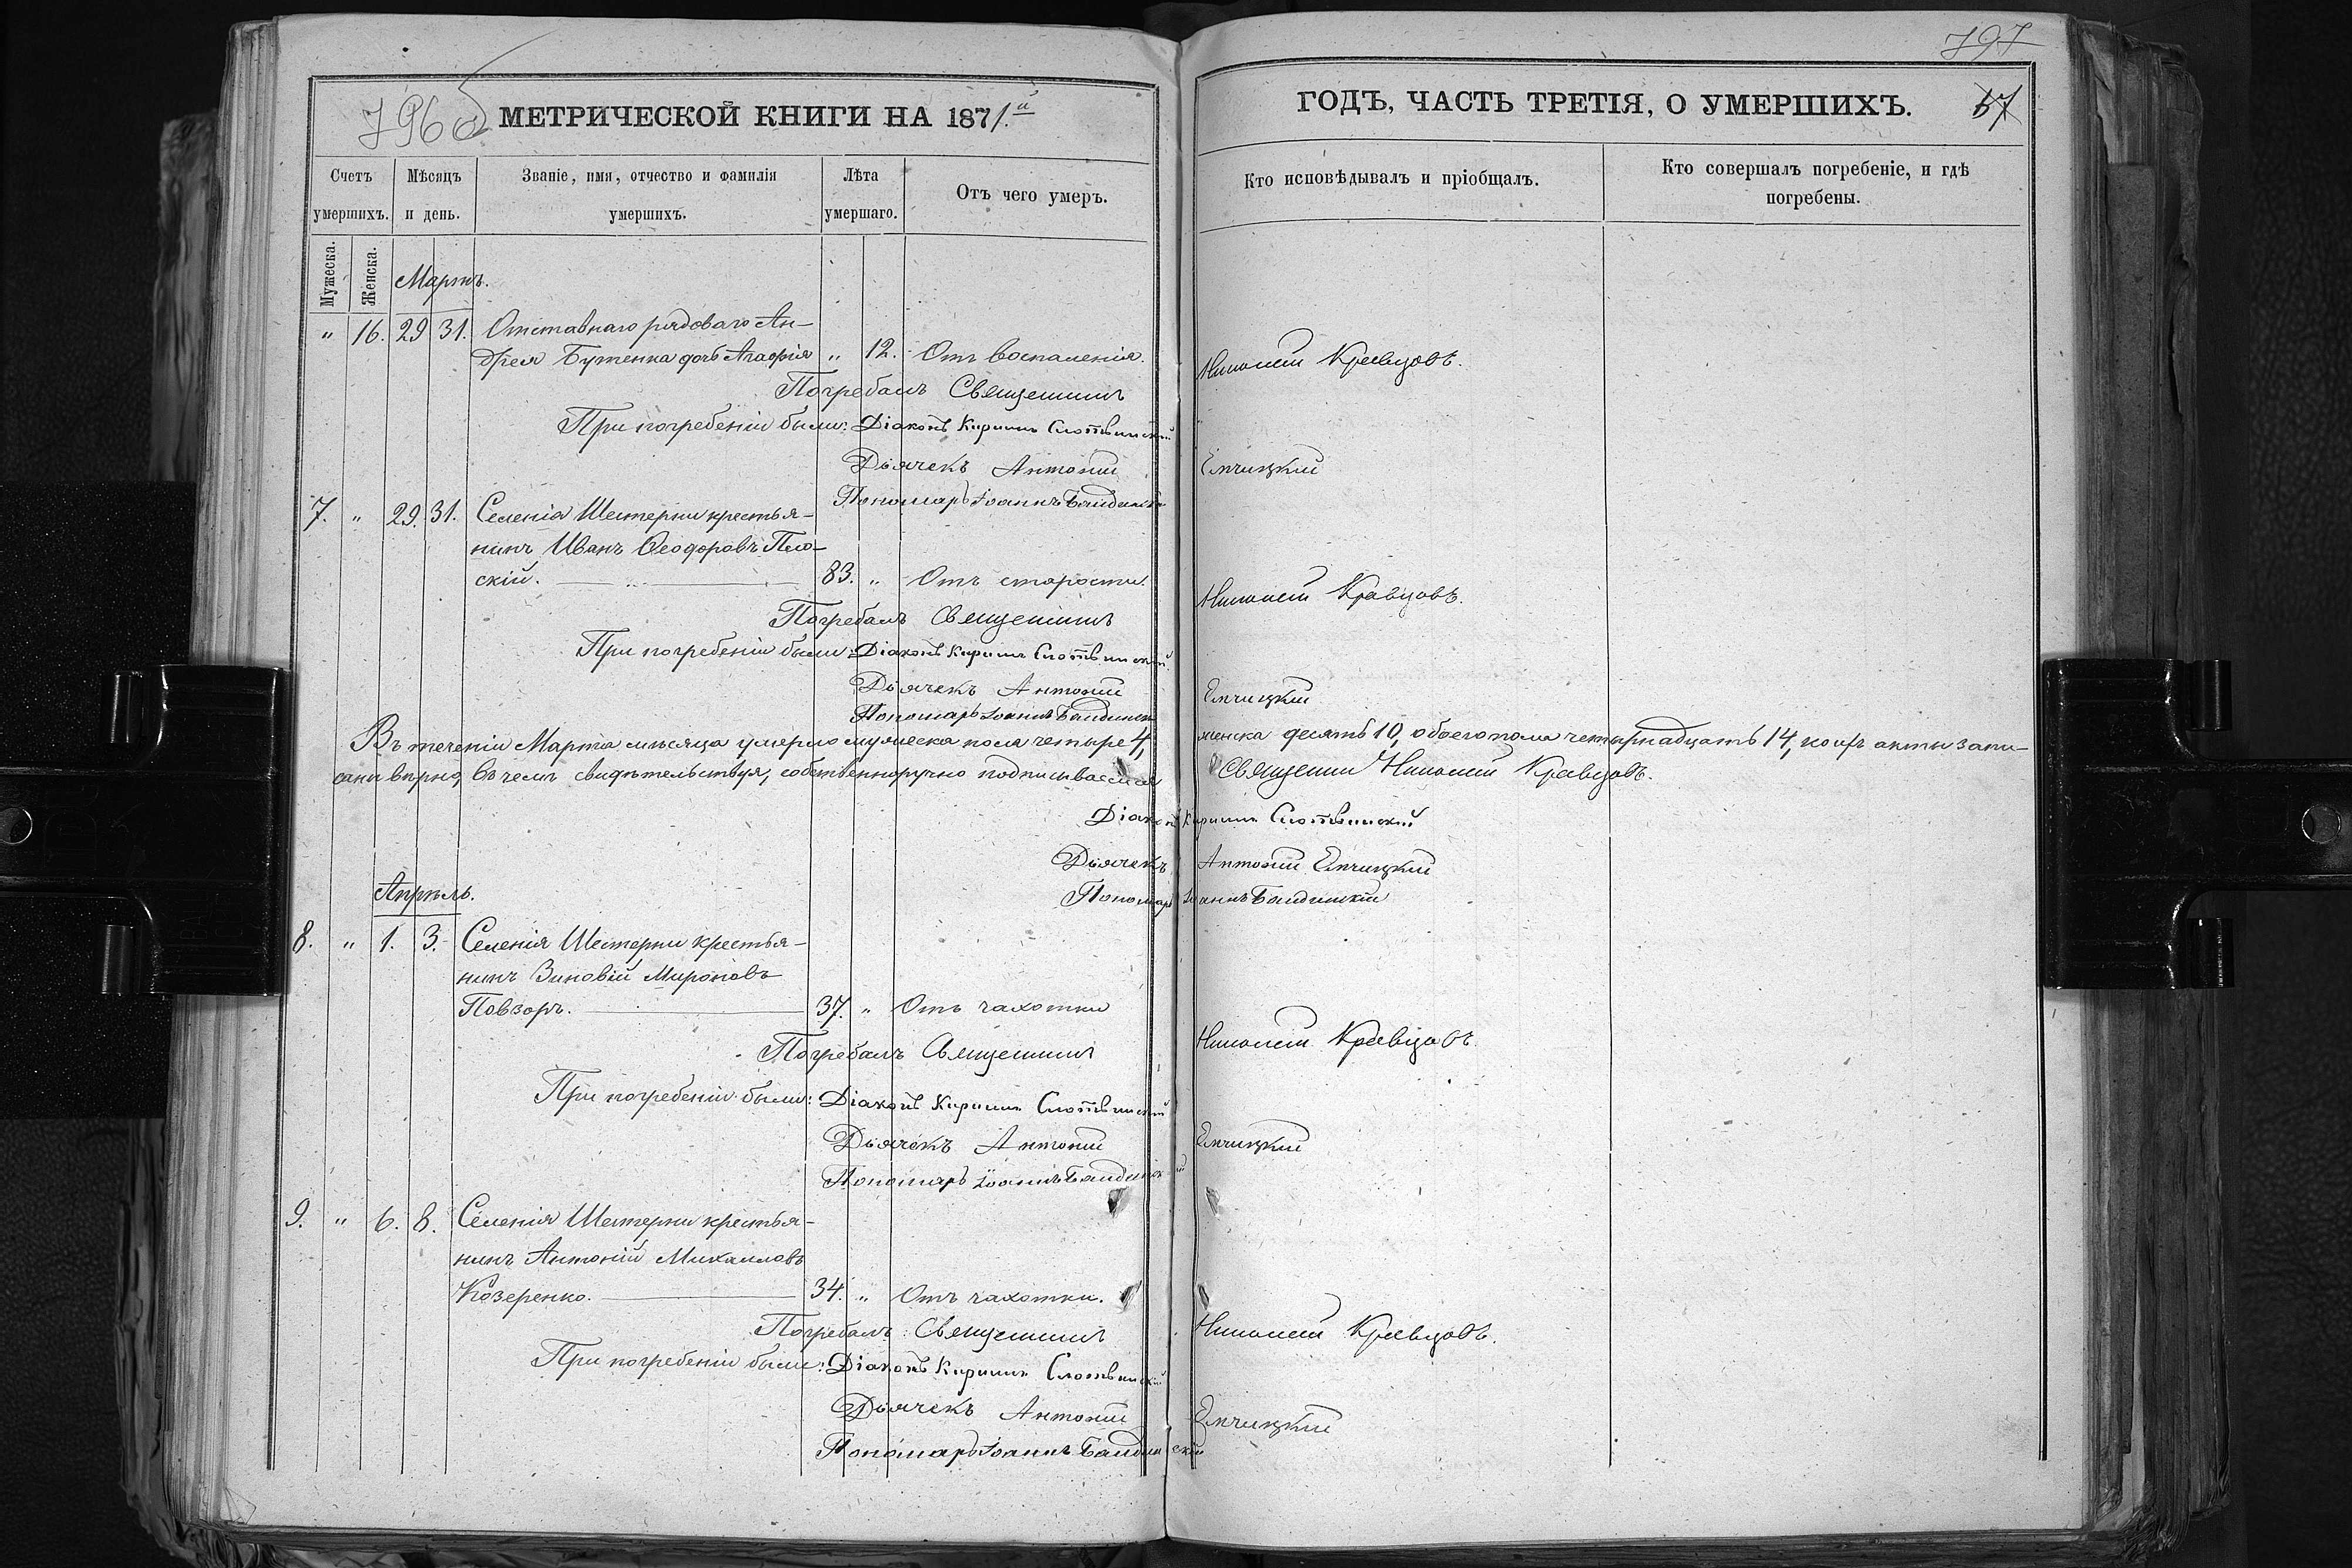 796об
МЕТРИЧЕСКОЙ КНИГИ НА 1871.й
Счетъ умершихъ.
Мѣсяцъ и день.
Званіе, имя, отчество и фамилія умершихъ.
Лѣта умершаго.
Отъ чего умеръ.
Мужеска.
Женска.
Мартъ.
" 16. 29 31. Отставнаго рядоваго Ан-
дрея Бутенка дочь Агафія " 12. Отъ воспаленія.
Погребалъ Священникъ
При погребеніи были: Діаконъ Кириллъ Слотвинскій
Дьячекъ Антоній
Пономарь Іоаннъ
7. " 29. 31. Селенія Шестерни крестья-
нинъ Иванъ Ѳеодоровъ
скій. 83. " Отъ старости.
Погребалъ Священникъ
При погребеніи были: Діаконъ Кириллъ Слотвинскій.
Дьячекъ Антоній
Пономарь Іоаннъ
Въ теченіи Марта мѣсяца умерло мужеска пола четыре 4,
саны вѣрно, въ чемъ свидѣтельствуя, собственноручно подписываемся
Діаконъ
Дьячекъ
Пономарь
Апрѣль.
8. " 1. 3. Селенія Шестерни крестья-
нинъ Зиновій Мироновъ
Повзоръ. 37. " Отъ чахотки
Погребалъ Священникъ
При погребеніи были: Діаконъ Кириллъ Слотвинскій
Дьячекъ Антоній
Пономарь Іоаннъ
9. " 6. 8. Селенія Шестерни крестья-
нинъ Антоній Михаиловъ
Козеренко. 34. " Отъ чахотки.
Погребалъ Священникъ
При погребеніи были: Діаконъ Кириллъ Слотвинскій
Дьячекъ Антоній
Пономарь Іоаннъ
797
ГОДЪ, ЧАСТЬ ТРЕТІЯ, О УМЕРШИХЪ. 57
Кто исповѣдывалъ и пріобщалъ.
Кто совершалъ погребеніе, и гдѣ погребены.
Николай Кравцовъ.
Емчицкій
Николай Кравцовъ.
Емчицкій
женска десять 10, обоего пола четырнадцать 14, коихъ акты запи-
Священникъ Николай Кравцовъ.
Кириллъ Слотвинскій
Антоній Емчицкій
Іоаннъ
Николай Кравцовъ.
Емчицкій
Николай Кравцовъ.
Емчицкій